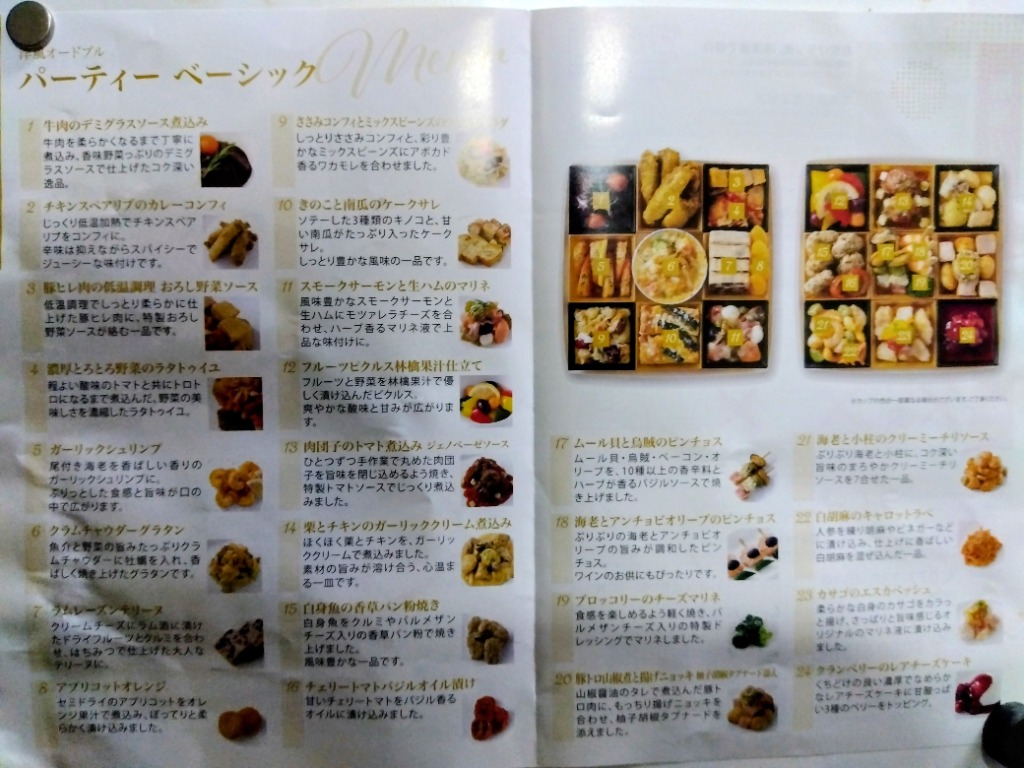 洋風オードブル
パーティー ベーシック
Menu
1 牛肉のデミグラスソース煮込み
牛肉を柔らかくなるまで丁寧に
煮込み、香味野菜っぷりのデミグ
ラスソースで仕上げたコク深い
逸品。
2 チキンスペアリブのカレーコンフィ
じっくり低温加熱でチキンスペア
リブをコンフィに。
辛味は抑えながらスパイシーで
ジューシーな味付けです。
3 豚ヒレ肉の低温調理 おろし野菜ソース
低温調理でしっとり柔らかに仕
上げた豚ヒレ肉に、特製おろし
野菜ソースが絡む一品です。
4 濃厚とろとろ野菜のラタトゥイユ
程よい酸味のトマトと共にトロト
ロになるまで煮込んだ、野菜の美
味しさを濃縮したラタトゥイユ。
5 ガーリックシュリンプ
尾付き海老を香ばしい香りの
ガーリックシュリンプに。
ぷりっとした食感と旨味が口の
中で広がります。
6 クラムチャウダーグラタン
魚介と野菜の旨みたっぷりクラ
ムチャウダーに牡蠣を入れ、香
ばしく焼き上げたグラタンです。
7 ラムレーズンテリーヌ
クリームチーズにラム酒に漬け
たドライフルーツとクルミを合わ
せ、はちみつで仕上げた大人な
テリーヌに。
8 アプリコットオレンジ
セミドライのアプリコットをオレ
ンジ果汁で煮込み、ぽってりと柔
らかく漬け込みました。
9 ささみコンフィとミックスビーンズの
しっとりささみコンフィと、彩り豊
かなミックスビーンズにアボカド
香るワカモレを合わせました。
10 きのこと南瓜のケークサレ
ソテーした3種類のキノコと、甘
い南瓜がたっぷり入ったケーク
サレ。
しっとり豊かな風味の一品です。
11 スモークサーモンと生ハムのマリネ
風味豊かなスモークサーモンと
生ハムにモツァレラチーズを合
わせ、ハーブ香るマリネ液で上
品な味付けに。
12 フルーツピクルス林檎果汁仕立て
フルーツと野菜を林檎果汁で優
しく漬け込んだピクルス。
爽やかな酸味と甘みが広がりま
す。
13 肉団子のトマト煮込み ジェノベーゼソース
ひとつずつ手作業で丸めた肉団
子を旨味を閉じ込めるよう焼き、
特製トマトソースでじっくり煮込
みました。
14 栗とチキンのガーリッククリーム煮込み
ほくほく栗とチキンを、ガーリ
ッククリームで煮込みました。
素材の旨みが溶け合う、心温ま
る一皿です。
15 白身魚の香草パン粉焼き
白身魚をクルミやパルメザン
チーズ入りの香草パン粉で焼き
上げました。
風味豊かな一品です。
16 チェリートマトバジルオイル漬け
甘いチェリートマトをバジル香る
オイルに漬け込みました。
17 ムール貝と烏賊のピンチョス
ムール貝・烏賊・ベーコン・オ
リーブを、10種以上の香辛料と
ハーブが香るバジルソースで焼
き上げました。
18 海老とアンチョビオリーブのピンチョス
ぷりぷりの海老とアンチョビオ
リーブの旨みが調和したピン
チョス。
ワインのお供にもぴったりです。
19 ブロッコリーのチーズマリネ
食感を楽しめるよう軽く焼き、パ
ルメザンチーズ入りの特製ド
レッシングでマリネしました。
20 豚トロ山椒煮と揚げニョッキ 柚子胡椒タプナード添え
山椒醤油のタレで煮込んだ豚ト
ロ肉に、もっちり揚げニョッキを
合わせ、柚子胡椒タプナードを
添えました。
21 海老と小柱のクリーミーチリソース
ぷりぷり海老と小柱に、コク深い
旨味のまろやかクリーミーチリ
ソースを合せた一品。
22 白胡麻のキャロットラペ
人参を練り胡麻やビネガーなど
に漬け込み、仕上げに香ばしい
白胡麻を混ぜ込んだ一品。
23 カサゴのエスカベッシュ
柔らかな白身のカサゴをカラっ
と揚げ、さっぱりと旨味感じるオ
リジナルのマリネ液に漬け込み
ました。
24 クランベリーのレアチーズケーキ
くちどけの良い濃厚でなめらか
なレアチーズケーキに甘酸っぱ
い3種のベリーをトッピング。